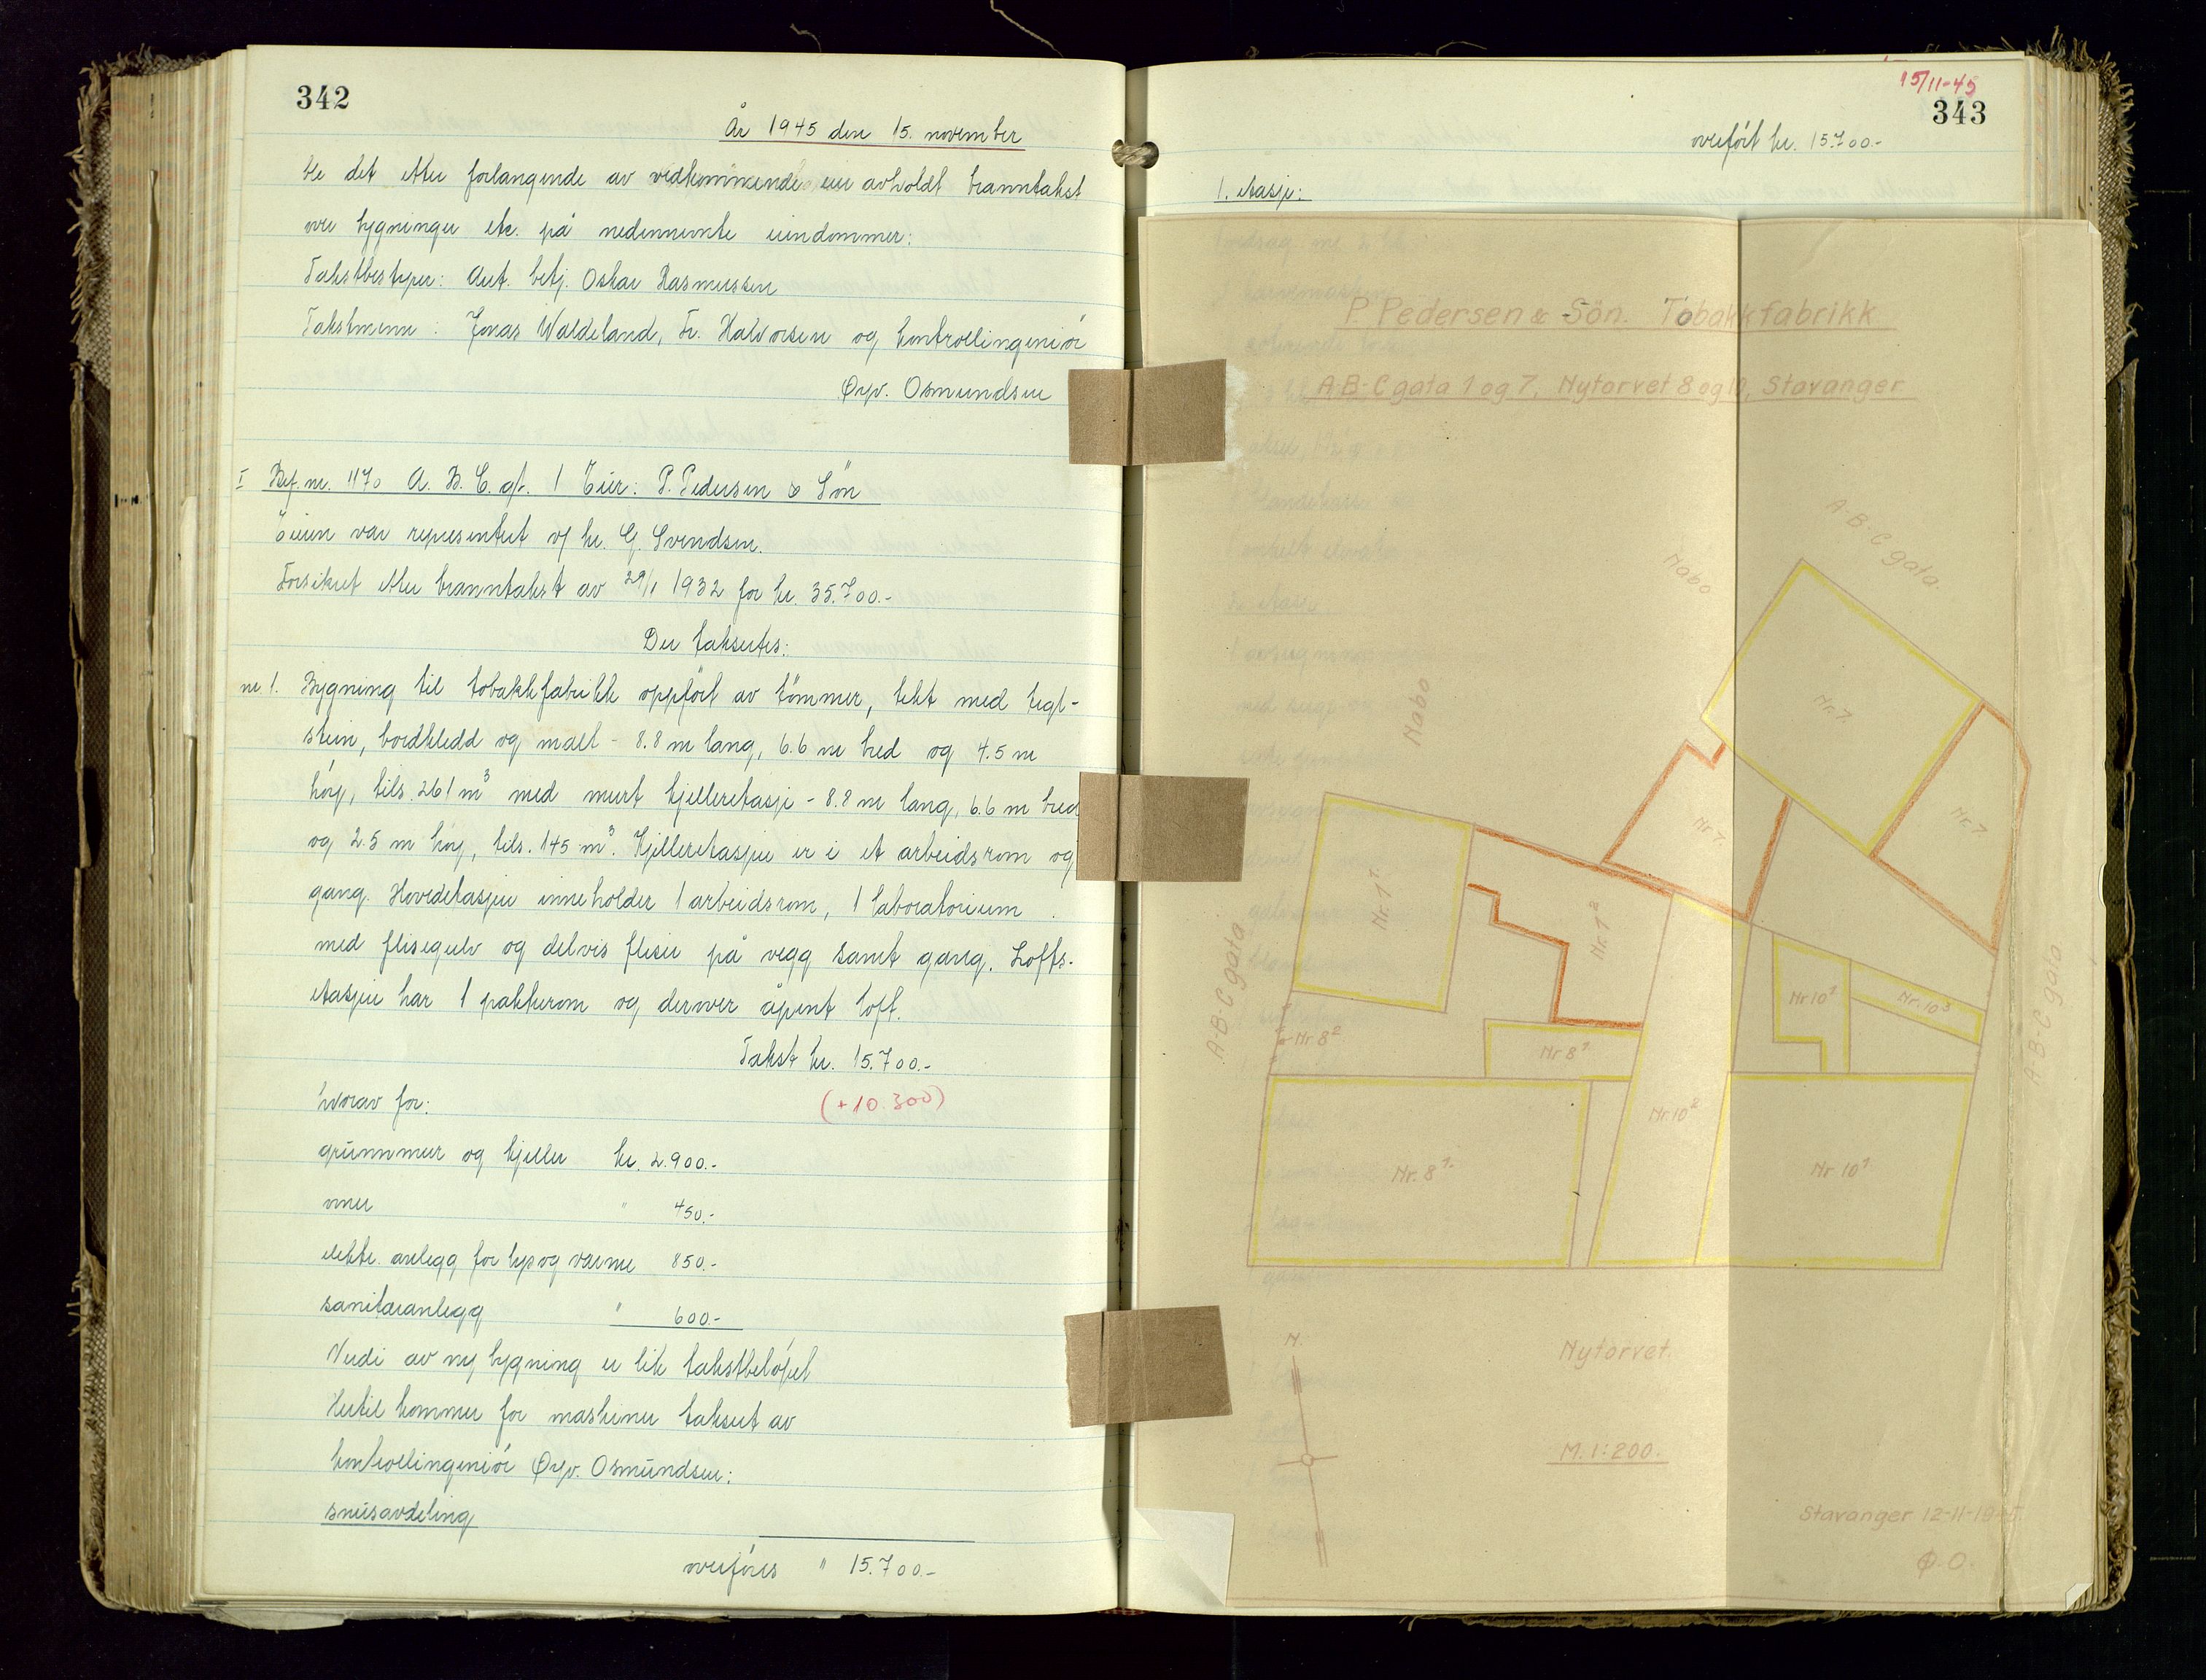 342
År 1945 den 15. november
ble det etter forlangende av vedkommende eier avholdt branntakst
over bygninger etc. på nedennevnte eiendommer:
Takstbestyrer: Aut. betj. Oskar Rasmussen
Takstmenn: Jonas Waldeland, Fr. Halvorsen og kontrollingeniör
Øyv. Osmundsen
I Bef. nr. 1170 A. B. C. gt. 1 Eier: P. Pedersen & Sön
Eieren var representert v/ hr. G. Svendsen.
Forsikret etter branntakst av 29/1 1932 for kr. 35.700.-
Der takseres:
nr. 1. Bygning til tobakkfabrikk oppfört av tömmer, tekt med tegl-
stein, bordkledd og malt - 8.8 m lang, 6.6 m bred og 4.5 m
höy, tils. 261 m³ med murt kjelleretasje - 8.8 m lang, 6.6 m bred
og 2.5 m höy, tils. 145 m³. Kjelleretasjen er i et arbeidsrom og
gang. Hovedetasjen inneholder 1 arbeidsrom, 1 laboratorium
med flisegulv og delvis fliser på vegg samt gang. Lofts-
etasjen har 1 pakkerom og derover åpent loft.
Takst kr. 15.700.-
(+10.300)
hvorav for:
grunnmur og kjeller kr. 2.900.-
ovner " 450.-
elektr. anlegg for lys og varme 850.-
sanitæranlegg " 600.-
Verdi av ny bygning er lik takstbelöpet
Hertil kommer for maskiner taksert av
kontrollingeniör Øyv. Osmundsen:
snusavdeling
overföres " 15.700.-
15/11-45
343
overfört kr. 15.700.-
1. etasje:
P. Pedersen & Sön. Tobakkfabrikk
A-B-C gata 1 og 7, Nytorvet 8 og 10, Stavanger
A-B-C gata.
Nabo
Nabo
Nr. 7.
Nr. 7
Nr. 7
Nr. 1¹
Nr. 1²
A-B-C gata
Nr 8²
Nr 8¹
Nr 10¹
Nr. 10³
A-B-C gata
Nr. 8¹
Nr 10²
Nr 10¹
N.
Nytorvet.
M. 1:200.
Stavanger 12-11-1945
Ø.O.